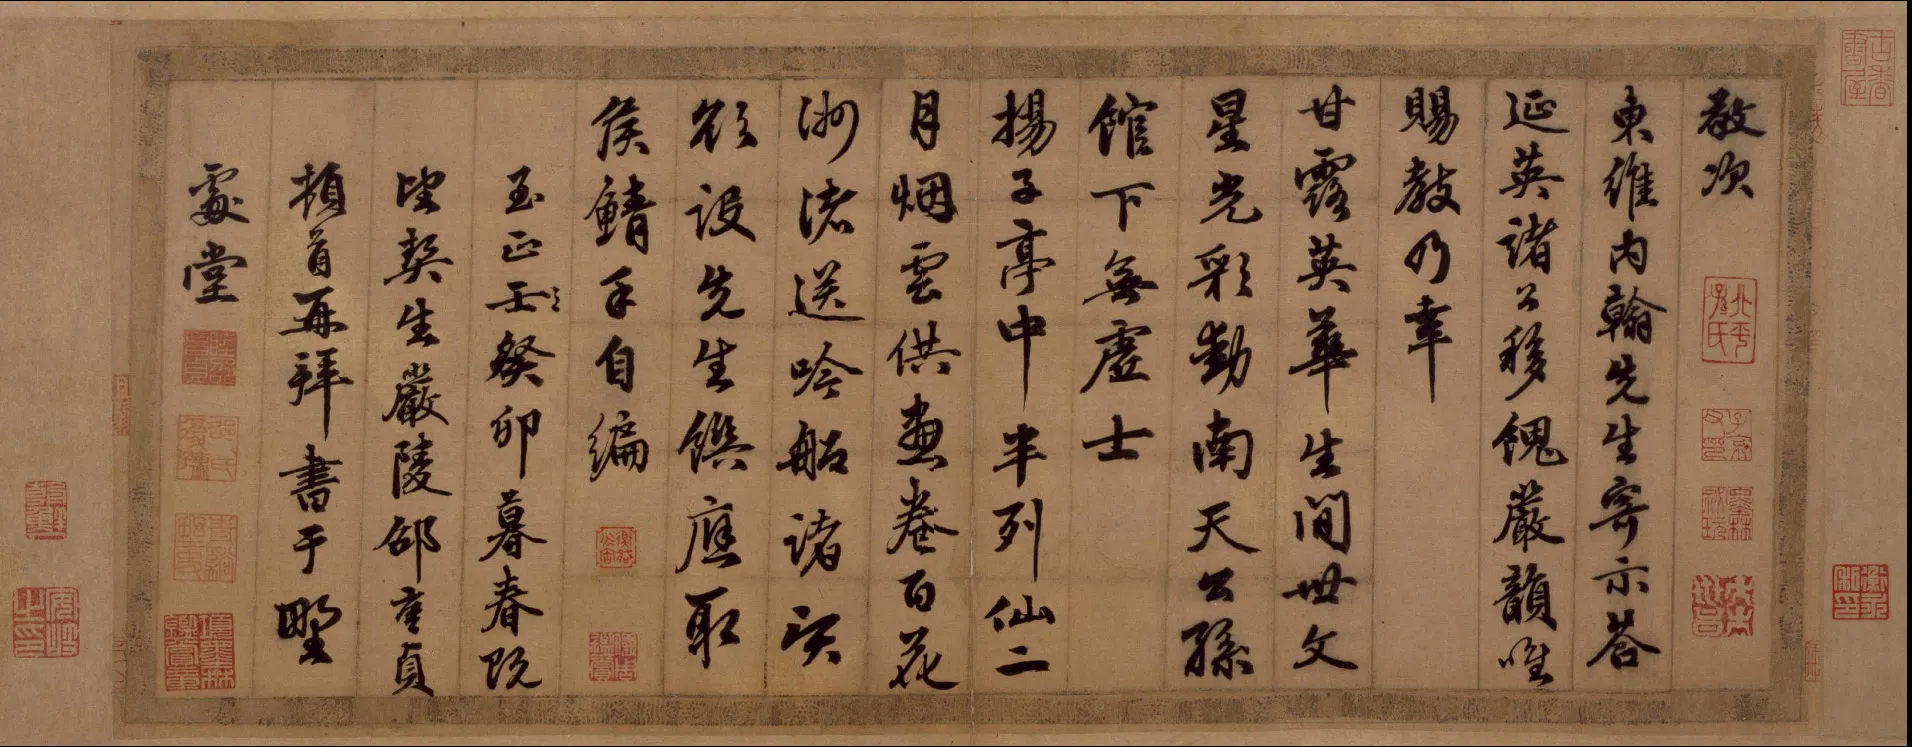 敬次
東維内翰先生寄示荅
延英諸公移餽嚴韻唯
賜教乃幸
甘露英華生間世文
星光彩動南天公孫
館下無虛士
揚子亭中半列仙二
月烟雲供畫卷百花
洲渚送吟船諸賓
欲設先生饌應取
侯鯖手自編
玉正壬癸卯暮春既
望契生嚴陵邵亨貞
頓首再拜書于野
處堂
子京父印
墨林祕玩
項墨林鑑賞章